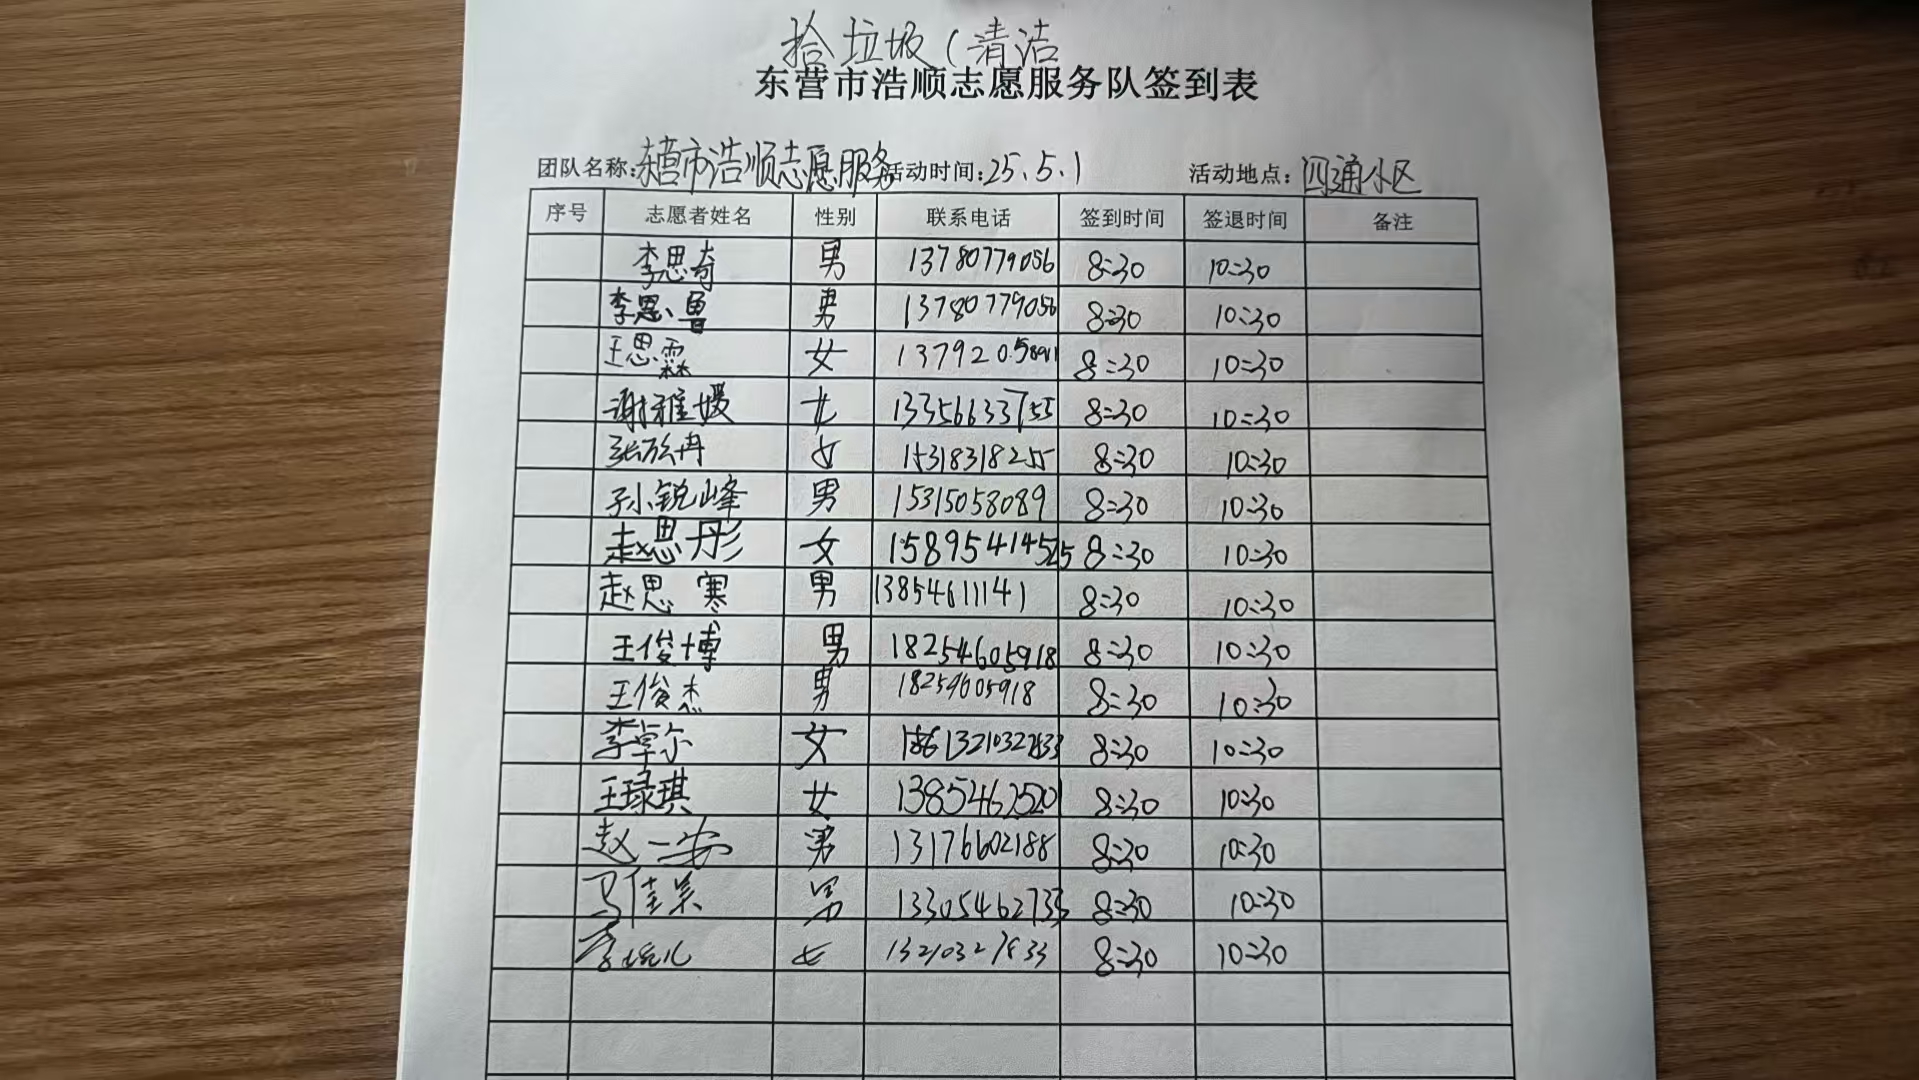 拾垃圾(清洁
东营市浩顺志愿服务队签到表
团队名称:东营市浩顺志愿服务 活动时间:25.5.1 活动地点:四通小区
序号 志愿者姓名 性别 联系电话 签到时间 签退时间 备注
李思奇 男 13780779056 8:30 10:30
李思鲁 男 13780779056 8:30 10:30
王思霖 女 8:30 10:30
谢雅媛 女 13356633755 8:30 10:30
张欣冉 女 15318318255 8:30 10:30
孙锐峰 男 15315058089 8:30 10:30
赵思彤 女 8:30 10:30
赵思寒 男 13854611141 8:30 10:30
王俊博 男 18254605918 8:30 10:30
王俊杰 男 18254605918 8:30 10:30
李卓尔 女 13210327833 8:30 10:30
王琭琪 女 13854625201 8:30 10:30
赵一安 男 13176602188 8:30 10:30
马佳 男 13305462733 8:30 10:30
李 儿 女 13210327833 8:30 10:30